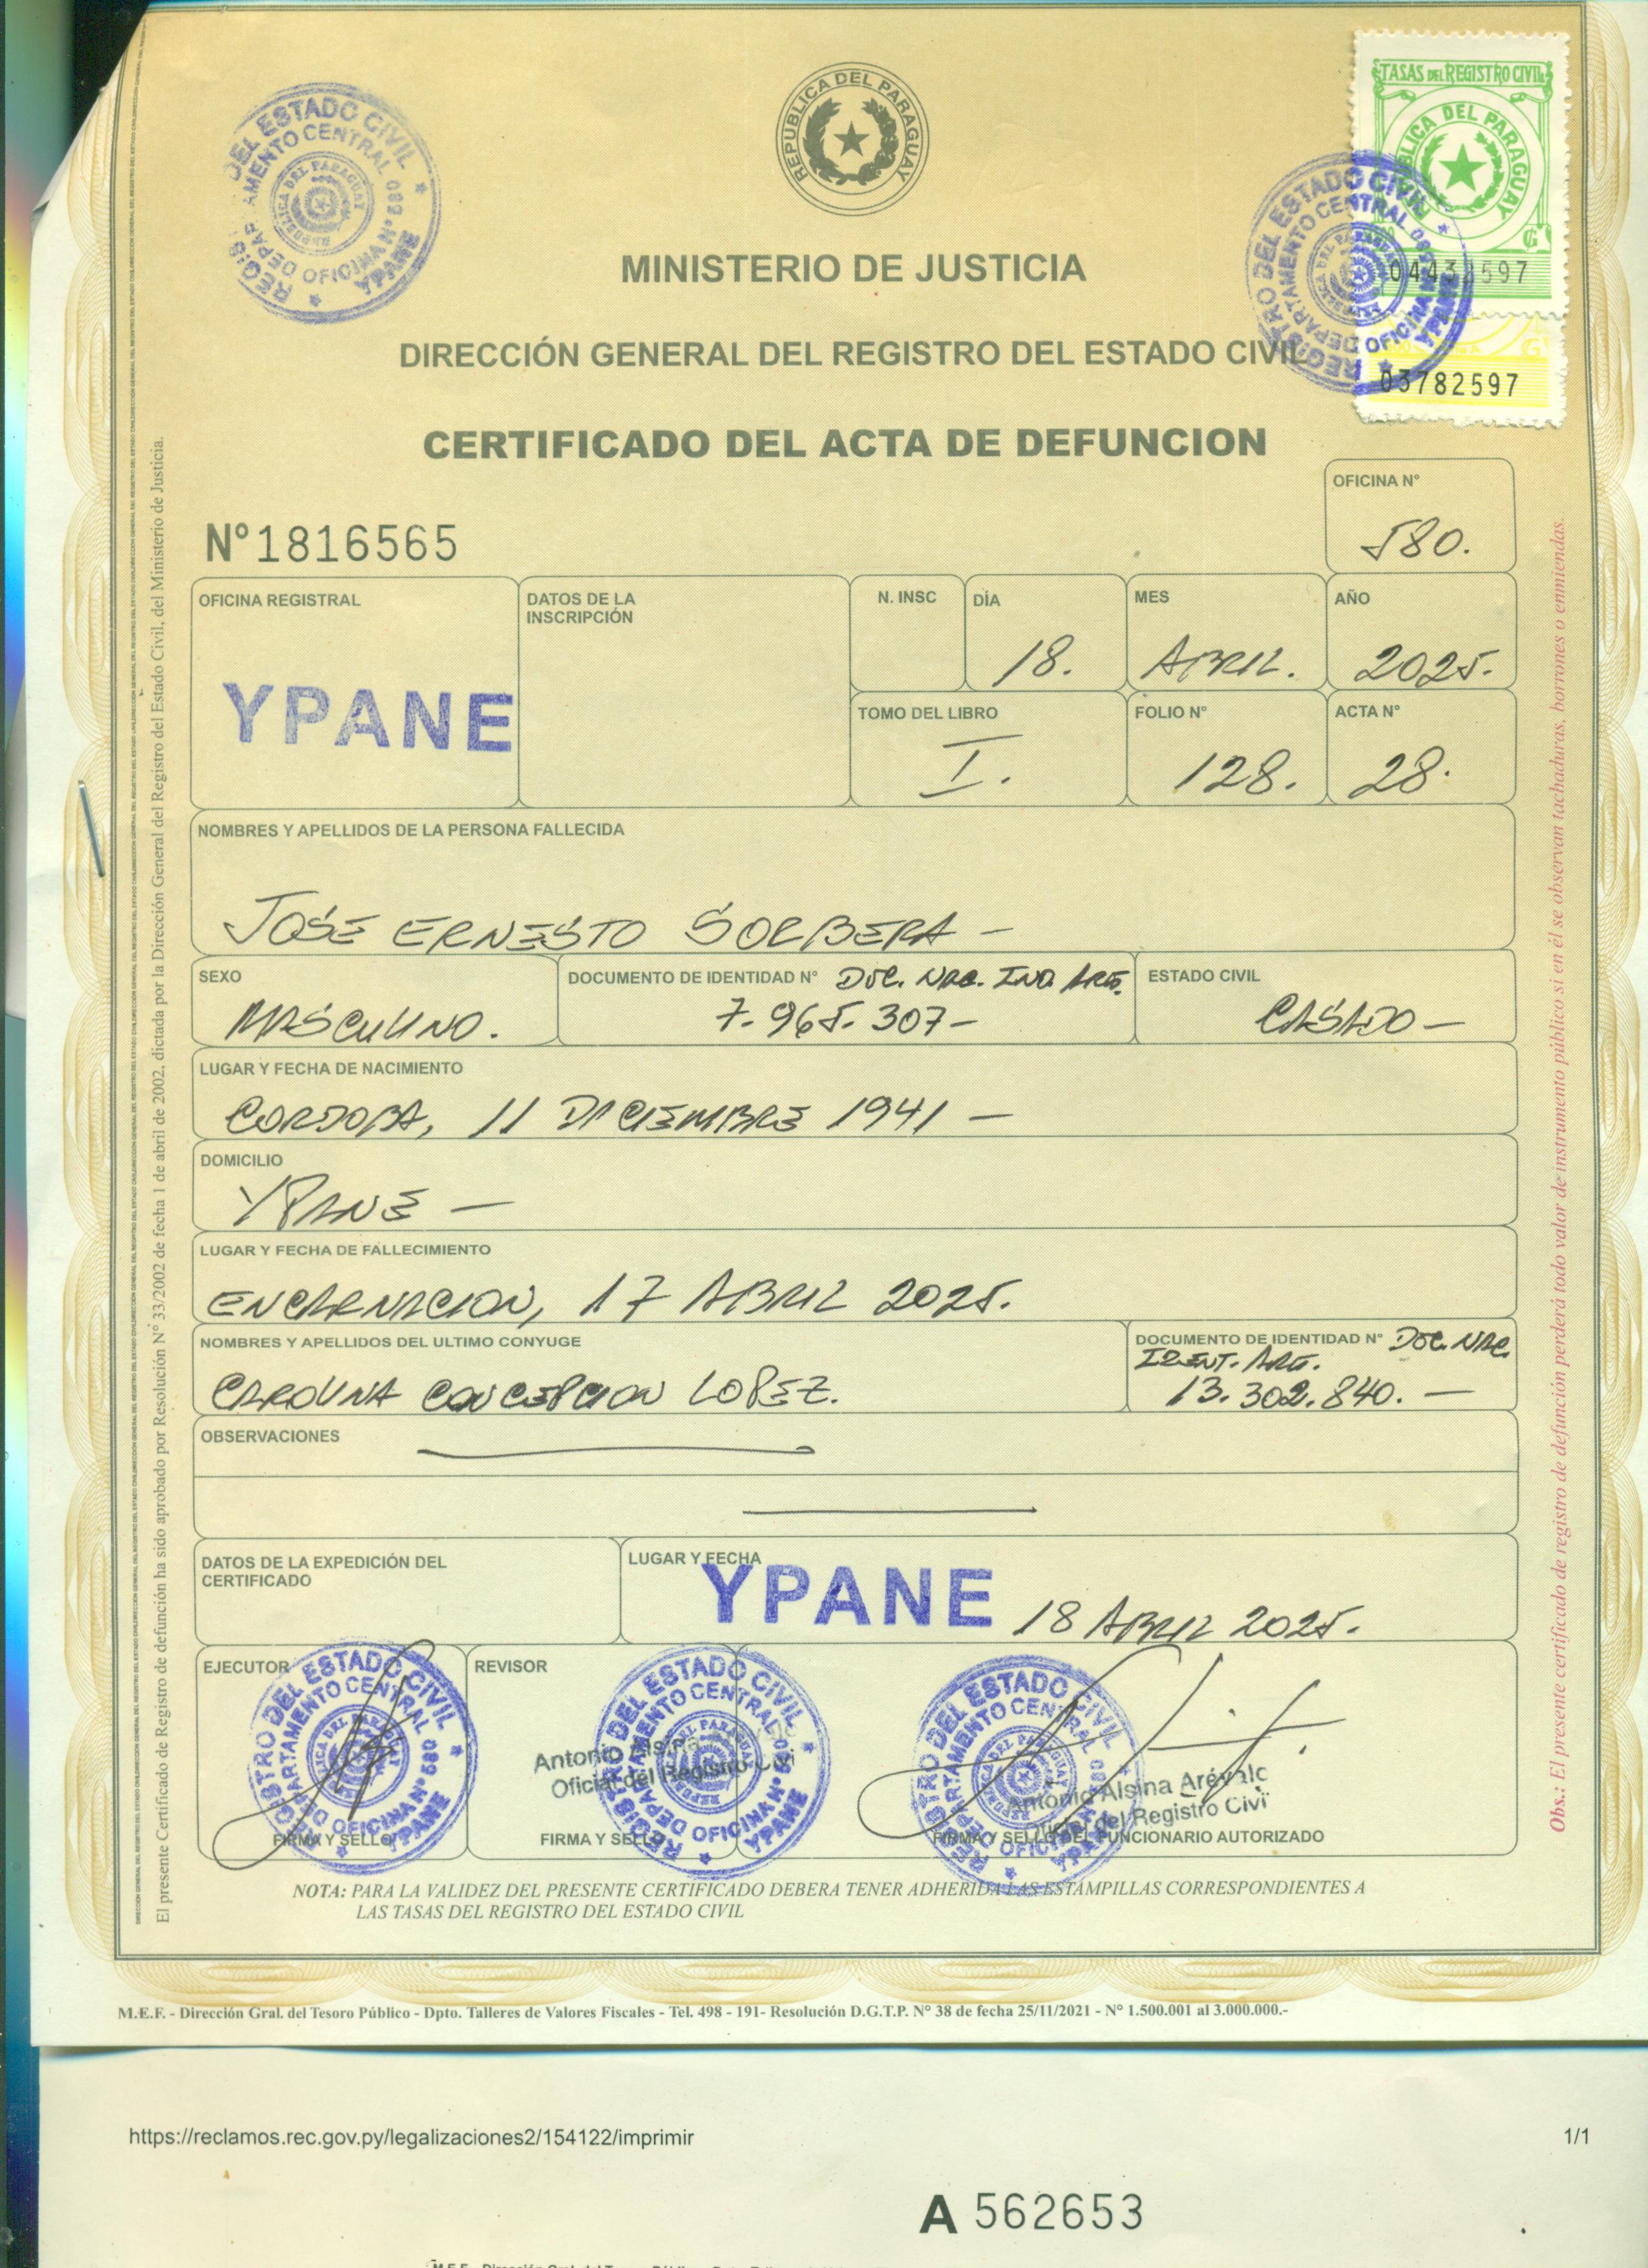 REPUBLICA DEL PARAGUAY
TASAS DEL REGISTRO CIVIL
REPUBLICA DEL PARAGUAY
REGISTRO DEL ESTADO CIVIL
DEPARTAMENTO CENTRAL
OFICINA Nº 580
YPANE
03782597
MINISTERIO DE JUSTICIA
DIRECCIÓN GENERAL DEL REGISTRO DEL ESTADO CIVIL
CERTIFICADO DEL ACTA DE DEFUNCION
OFICINA Nº
580.
Nº1816565
OFICINA REGISTRAL
YPANE
DATOS DE LA
INSCRIPCIÓN
N. INSC
DÍA
18.
MES
ABRIL.
AÑO
2025.
TOMO DEL LIBRO
I.
FOLIO Nº
128.
ACTA Nº
28.
NOMBRES Y APELLIDOS DE LA PERSONA FALLECIDA
JOSE ERNESTO SORBERA -
SEXO
MASCULINO.
DOCUMENTO DE IDENTIDAD Nº DOC. NAC. IND ARG.
7.965.307-
ESTADO CIVIL
CASADO -
LUGAR Y FECHA DE NACIMIENTO
CORDOBA, 11 DICIEMBRE 1941 -
DOMICILIO
YPANE -
LUGAR Y FECHA DE FALLECIMIENTO
ENCARNACION, 17 ABRIL 2025.
NOMBRES Y APELLIDOS DEL ULTIMO CONYUGE
CAROLINA CONCEPCION LOPEZ.
DOCUMENTO DE IDENTIDAD Nº DOC. NAC.
IDENT. ARG.
13.302.840. -
OBSERVACIONES
DATOS DE LA EXPEDICIÓN DEL
CERTIFICADO
LUGAR Y FECHA
YPANE 18 ABRIL 2025.
EJECUTOR
FIRMA Y SELLO
REVISOR
Antonio Alsina
Oficial del Registro Civi
FIRMA Y SELLO
REGISTRO DEL ESTADO CIVIL
DEPARTAMENTO CENTRAL
OFICINA Nº 580
YPANE
Antonio Alsina Arévalo
Oficial del Registro Civi
FIRMA Y SELLO DEL FUNCIONARIO AUTORIZADO
NOTA: PARA LA VALIDEZ DEL PRESENTE CERTIFICADO DEBERA TENER ADHERIDA LAS ESTAMPILLAS CORRESPONDIENTES A
LAS TASAS DEL REGISTRO DEL ESTADO CIVIL
El presente Certificado de Registro de defunción ha sido aprobado por Resolución Nº 33/2002 de fecha 1 de abril de 2002, dictada por la Dirección General del Registro del Estado Civil, del Ministerio de Justicia.
Obs.: El presente certificado de registro de defunción perderá todo valor de instrumento público si en él se observan tachaduras, borrones o enmiendas.
M.E.F. - Dirección Gral. del Tesoro Público - Dpto. Talleres de Valores Fiscales - Tel. 498 - 191- Resolución D.G.T.P. Nº 38 de fecha 25/11/2021 - Nº 1.500.001 al 3.000.000.-
https://reclamos.rec.gov.py/legalizaciones2/154122/imprimir
1/1
A 562653